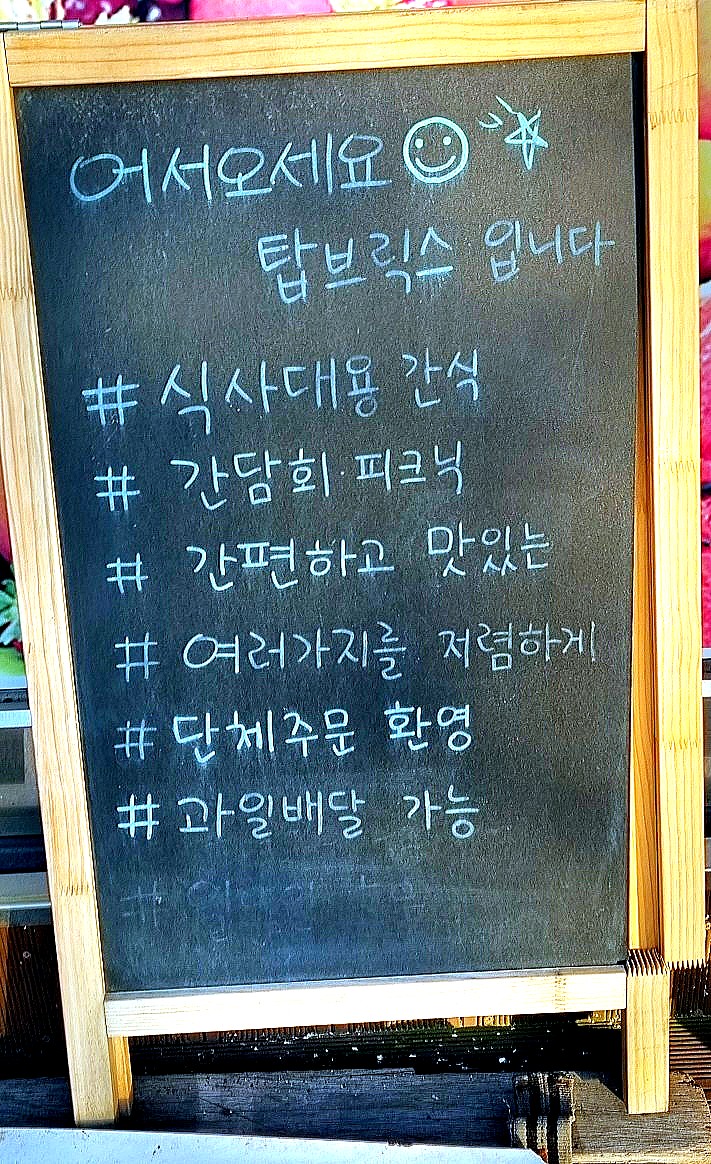 어서오세요
탑브릭스 입니다
# 식사대용 간식
# 간담회·피크닉
# 간편하고 맛있는
# 여러가지를 저렴하게
# 단체주문 환영
# 과일배달 가능
#